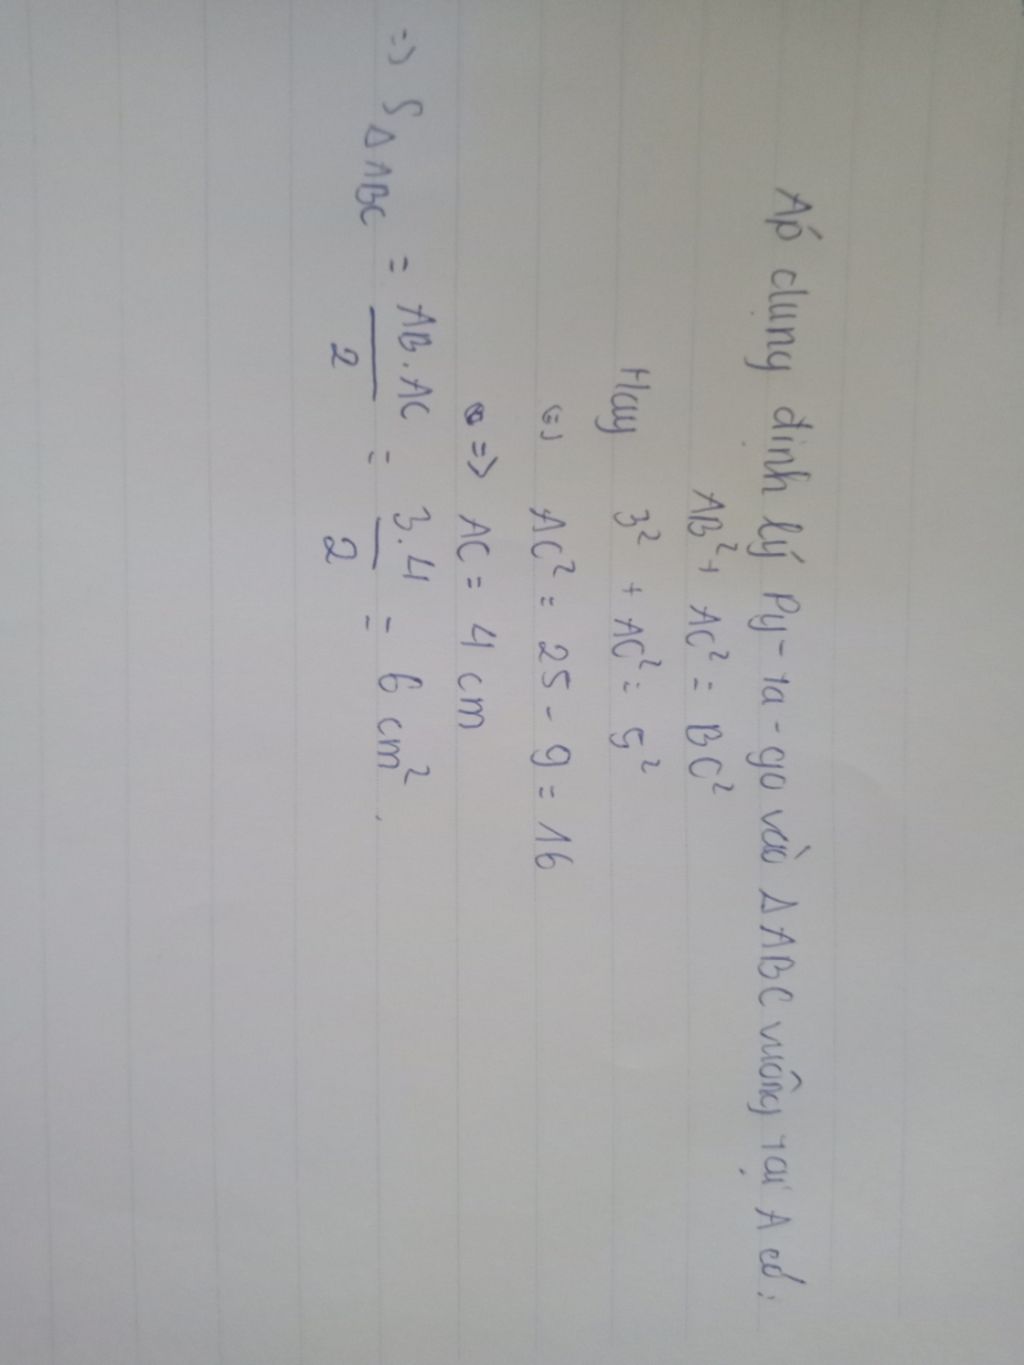 Áp dụng định lý Py-ta-go vào Δ ABC vuông tại A có:
AB² + AC² = BC²
Hay 3² + AC² = 5²
(=) AC² = 25 - 9 = 16
=> AC = 4 cm
=> S Δ ABC = AB.AC/2 = 3.4/2 = 6 cm².